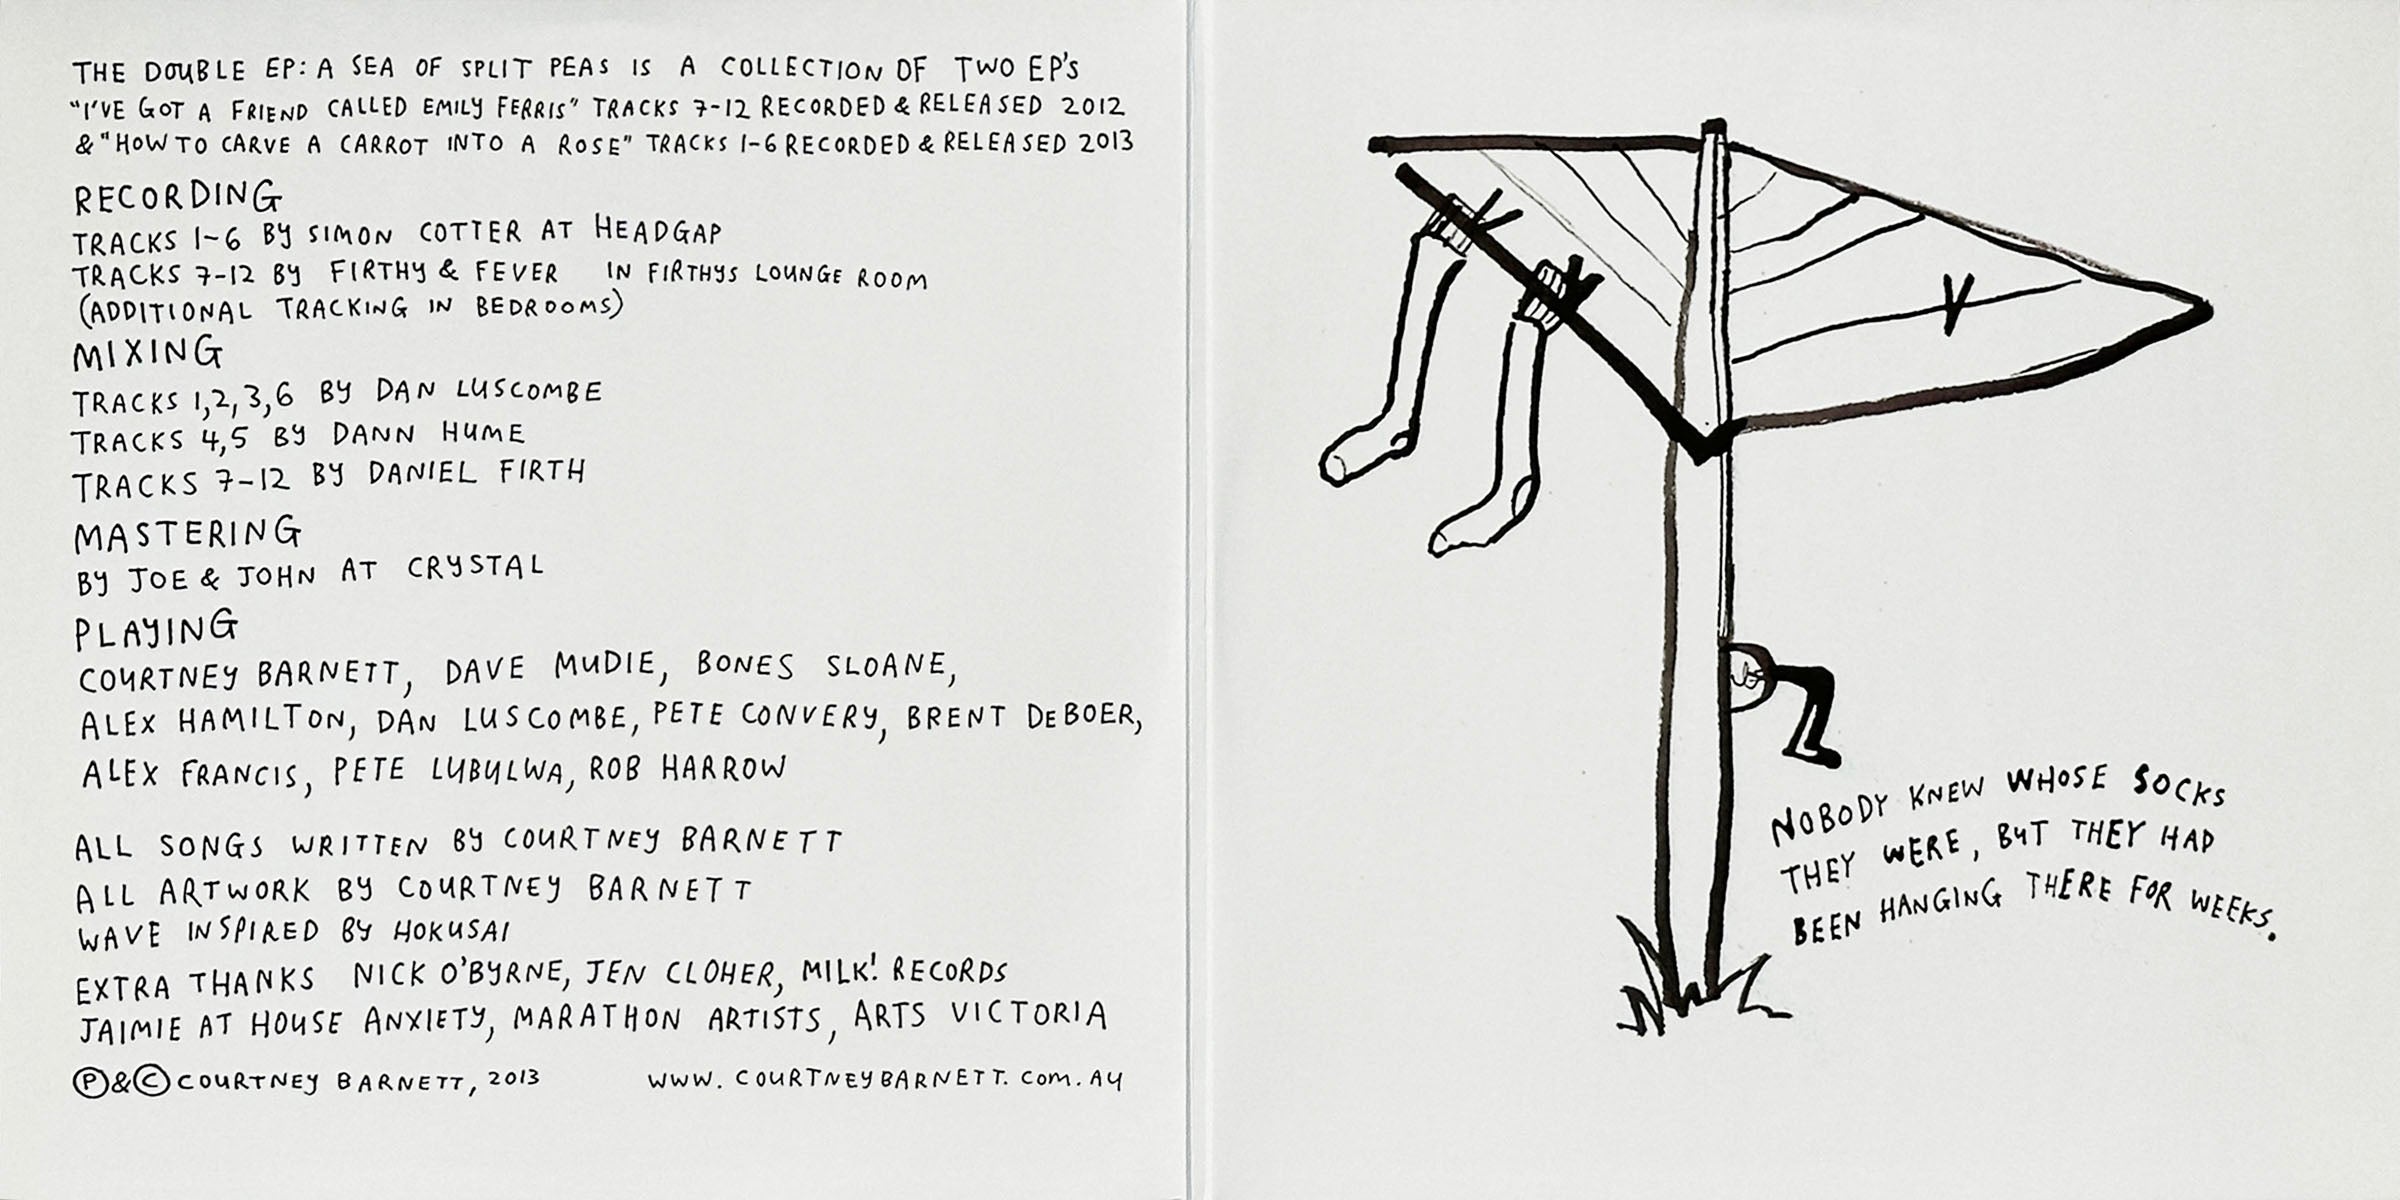 THE DOUBLE EP: A SEA OF SPLIT PEAS IS A COLLECTION OF TWO EP'S
"I'VE GOT A FRIEND CALLED EMILY FERRIS" TRACKS 7-12 RECORDED & RELEASED 2012
& "HOW TO CARVE A CARROT INTO A ROSE" TRACKS 1-6 RECORDED & RELEASED 2013
RECORDING
TRACKS 1-6 BY SIMON COTTER AT HEADGAP
TRACKS 7-12 BY FIRTHY & FEVER IN FIRTHYS LOUNGE ROOM
(ADDITIONAL TRACKING IN BEDROOMS)
MIXING
TRACKS 1,2,3,6 BY DAN LUSCOMBE
TRACKS 4,5 BY DANN HUME
TRACKS 7-12 BY DANIEL FIRTH
MASTERING
BY JOE & JOHN AT CRYSTAL
PLAYING
COURTNEY BARNETT, DAVE MUDIE, BONES SLOANE,
ALEX HAMILTON, DAN LUSCOMBE, PETE CONVERY, BRENT DEBOER,
ALEX FRANCIS, PETE LUBULWA, ROB HARROW
ALL SONGS WRITTEN BY COURTNEY BARNETT
ALL ARTWORK BY COURTNEY BARNETT
WAVE INSPIRED BY HOKUSAI
EXTRA THANKS NICK O'BYRNE, JEN CLOHER, MILK! RECORDS
JAIMIE AT HOUSE ANXIETY, MARATHON ARTISTS, ARTS VICTORIA
℗&© COURTNEY BARNETT, 2013 WWW.COURTNEYBARNETT.COM.AU
NOBODY KNEW WHOSE SOCKS
THEY WERE, BUT THEY HAD
BEEN HANGING THERE FOR WEEKS.